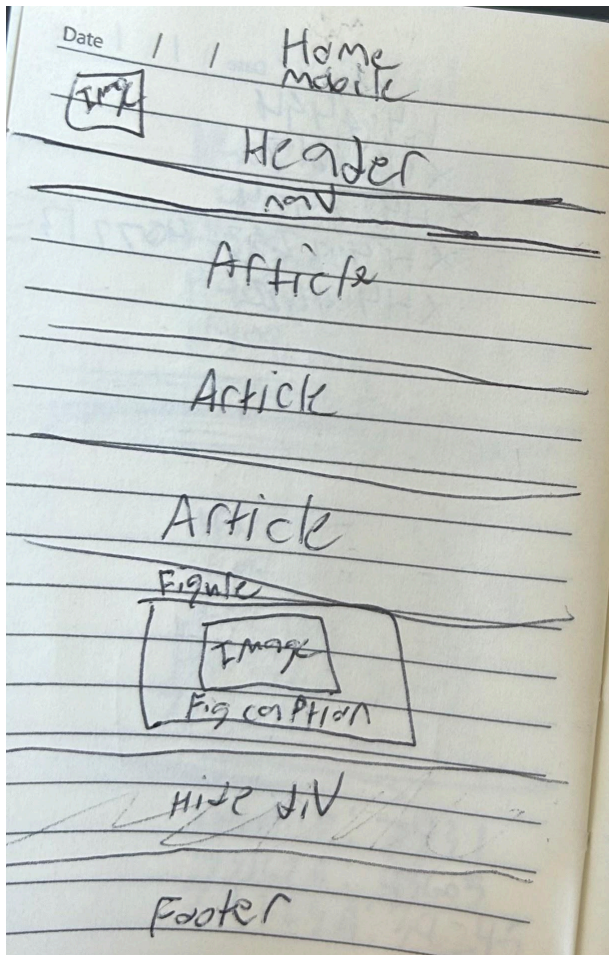 Date / / /
Home
mobile
Img
Header
nav
Article
Article
Article
Figure
Image
Fig caption
Hide div
Footer